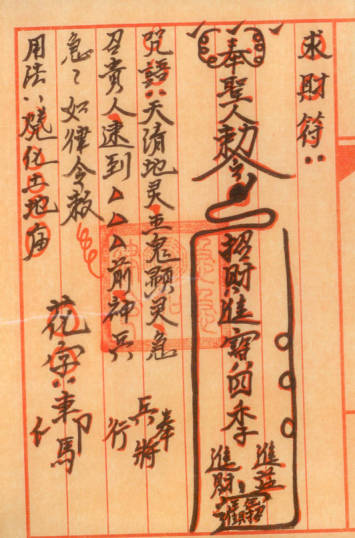 求財符：
奉聖人勅令
招財進寶四季
進益
進財
咒語：天清地灵五鬼顯灵急
召貴人速到△△△前神兵
急〻如律令敕
奉行
兵將
花字：車馬
用法：燒化土地庙